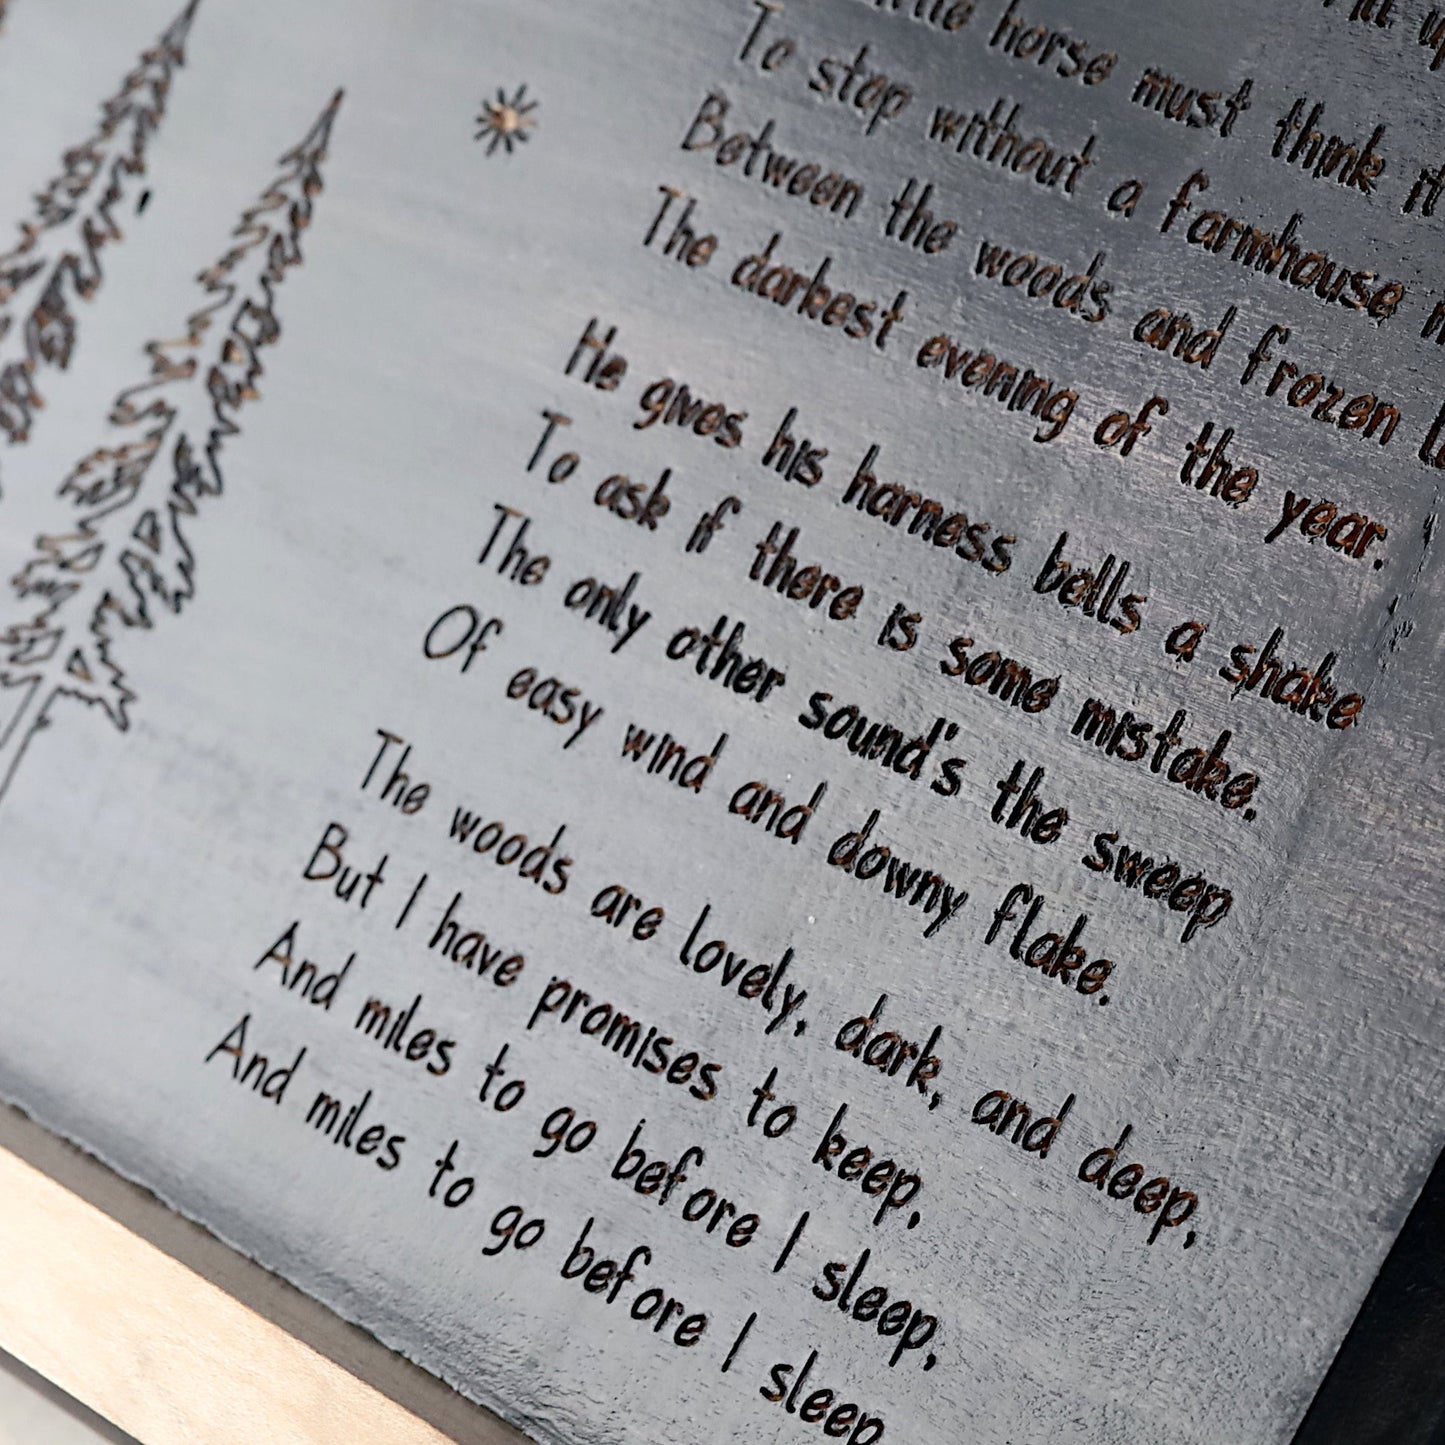 horse must think it
To stop without a farmhouse
Between the woods and frozen
The darkest evening of the year.
He gives his harness bells a shake
To ask if there is some mistake.
The only other sound's the sweep
Of easy wind and downy flake.
The woods are lovely, dark, and deep,
But I have promises to keep,
And miles to go before I sleep,
And miles to go before I sleep